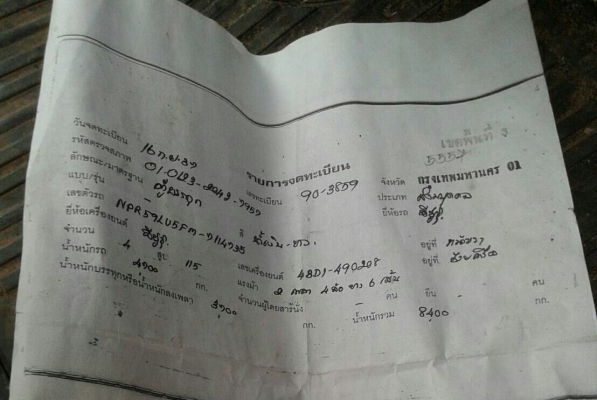 เขตพื้นที่ 3
5557
รายการจดทะเบียน
วันจดทะเบียน 16 ก.ย. 37 เลขทะเบียน 90-3859 จังหวัด กรุงเทพมหานคร 01
รหัสตรวจสภาพ ประเภท
ลักษณะ/มาตรฐาน ตู้บรรทุก ยี่ห้อรถ อีซูซุ
แบบ/รุ่น - สี น้ำเงิน-ขาว
เลขตัวรถ NPR59LU5FM- อยู่ที่
ยี่ห้อเครื่องยนต์ อีซูซุ เลขเครื่องยนต์ 4BD1-490208 อยู่ที่
จำนวน 4 สูบ 115 แรงม้า 2 เพลา 4 ล้อ ยาง 6 เส้น
น้ำหนักรถ 4700 กก. จำนวนผู้โดยสารนั่ง - คน ยืน - คน
น้ำหนักบรรทุกหรือน้ำหนักลงเพลา 3700 กก. น้ำหนักรวม 8400 กก.